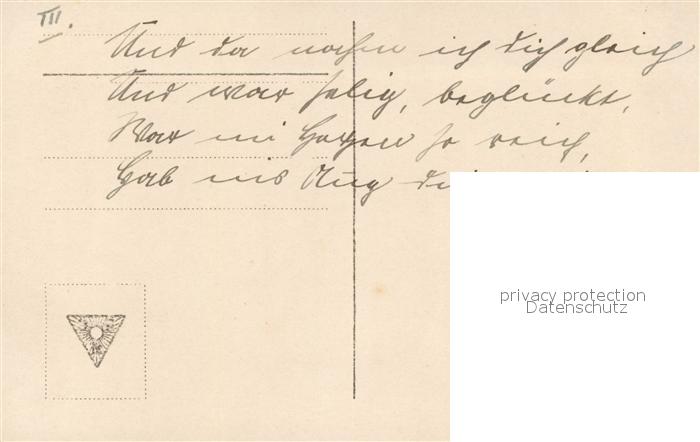 III.
Und da nahm ich dich gleich
Und war selig, beglückt,
War im Herzen so reich,
Hab ins Aug
privacy protection
Datenschutz